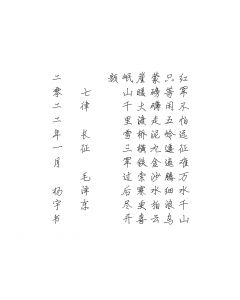 红军不怕远征难万水千山
只等闲五岭逶迤腾细浪乌
蒙磅礴走泥丸金沙水拍云
崖暖大渡桥横铁索寒更喜
岷山千里雪三军过后尽开
颜
七律 长征 毛泽东
二零二二年一月 杨宇书